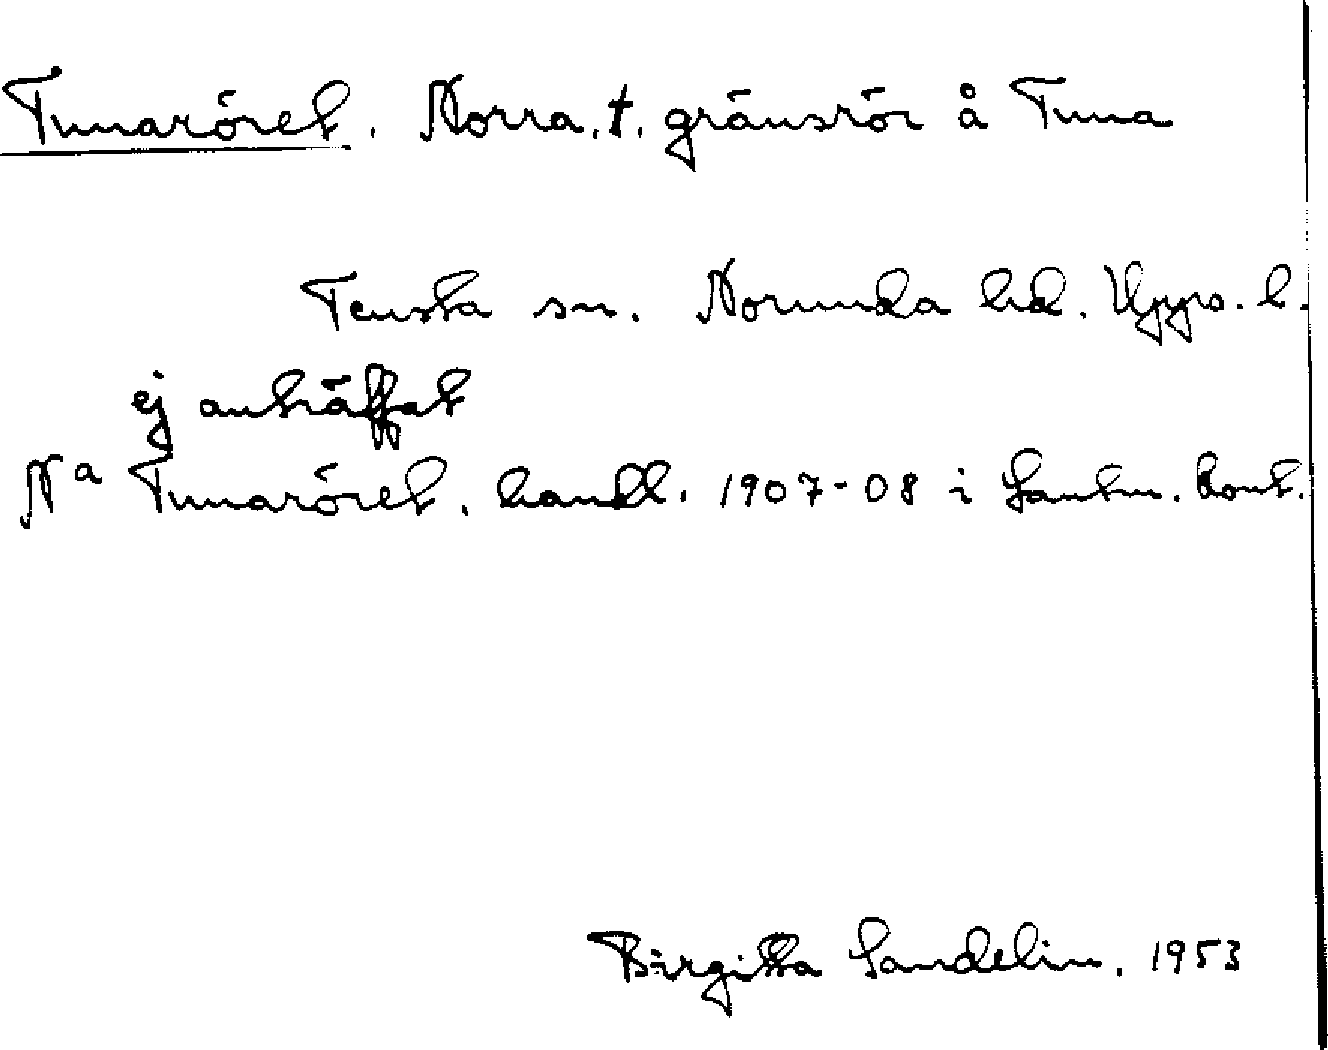 Tunaröret, Norra, †, gränsrör å Tuna
Tensta sn. Norunda hd. Upps. l.
ej anträffat
Na Tunaröret, handl. 1907-08 i Lantm. kont.
Birgitta Sandelin, 1953